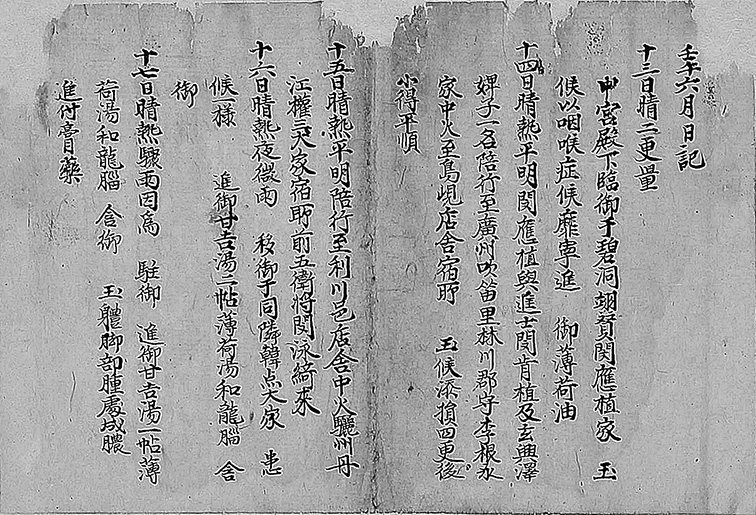 壬午六月日記
十三日晴二更量
中宮殿下臨御于碧洞翊贊閔應植家　玉
候以咽喉症候靡寧進　御薄荷油
十四日晴熱平明閔應植與進士閔肯植及玄興澤
婢子一名陪行至廣州吹笛里林川郡守李根永
家中火至鳥峴店舍宿所　玉候添損四更後
小得平順
十五日晴熱平明陪行至利川邑店舍中火驪州丹
江權三大家宿所前五衛將閔泳綺來
十六日晴熱夜微雨　移御于同隣韓点大家　患
候一樣　進御甘吉湯二帖薄荷湯和龍腦　含
御
十七日晴熱驟雨因爲　駐御　進御甘吉湯一帖薄
荷湯和龍腦　含御　玉體脚部腫處成膿
進付膏藥